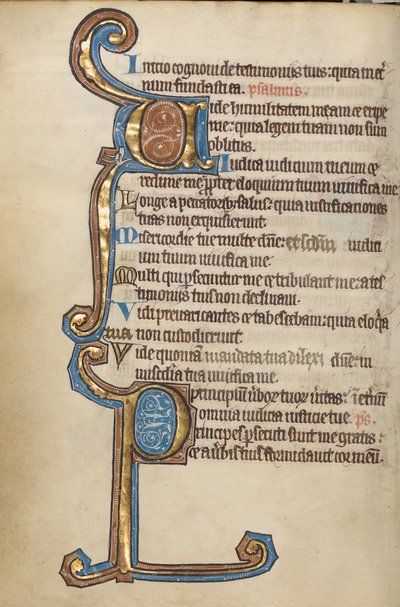 Initio cognoui de testimoniis tuis: quia in et̾
num fundasti ea. psalmus.
Uide humilitatem meam et eripe
me: quia legem tuam non sum
oblitus.
Iudica iudicium meum et
redime me: ꝓpter eloquium tuum uiuifica me.
Longe a peccatoribꝫ salus: quia iustificationes
tuas non exquisierunt.
Misericordie tue multe dñe: et scdm iudici
um tuum uiuifica me.
Multi qui ꝑsecuntur me et tribulant me: a tes
timoniis tuis non declinaui.
Vidi preuaricantes et tabescebam: quia eloquia
tua non custodierunt.
Vide quoniam mandata tua dilexi dñe: in
misc̄dia tua uiuifica me.
Principium ũborꝫ tuorꝫ ũitas: ĩ et̾num
omnia iudicia iusticie tue. ps.
Principes ꝑsecuti sunt me gratis:
et a ũbis tuis formidauit cor meum.